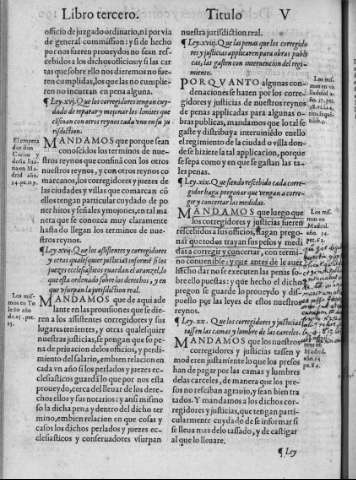 Libro tercero.
Titulo V
officio de juzgado ordinario, ni por via
de general commission: y si de hecho
por nos fueren proueydos no sean res-
cebidos a los dichos officios, y si las car
tas que sobre ello nos dieremos no fueren
cumplidas, los que las no cumplie-
ren no incurran en pena alguna.
¶ Ley.xvj. Que los corregidores tengan cuy-
dado de reparar y mejorar los limites que
jurisdiction.
El emperador
don
Carlos y
doña Juana
en Madrid
MANDAMOS que porque sean
conoscidos los terminos de nue-
stros reynos que confinã con los otros
nuestros reynos, y con otros reynos co
marcanos, los corregidores y juezes de
las ciudades y villas que comarcan cõ
ellos tengan particular cuydado de po
ner hitos y señales y mojones, en tal ma
nera que se conozca muy claramente
hasta do llegan los terminos de nue-
stros reynos.
y otros qualesquier justicias informẽ si los
juezes ecclesiasticos guardan el aranzel, lo
que esta ordenado sobre los derechos, y en
que vsurpan la jurisdiction real.
Los mismos
en Toledo
año
MANDAMOS que de aqui ade
lante en las prouisiones que se die-
ren a los assistentes corregidores y sus
lugares tenientes, y otras qualesquier
nuestras justicias, se pongan que so pe-
na de priuacion de los officios, y perdi-
miento del salario, embien relacion en
cada vn año si los perlados y juezes ec-
clesiasticos guardã lo que por nos esta
proueydo, cerca del lleuar de los dere-
chos ellos y sus notarios: y ansi mismo
so la dicha pena y dentro del dicho ter
mino, embien relacion en que cosas y
casos los dichos perlados y juezes ec-
clesiasticos y conseruadores vsurpan
nuestra jurisdiction real.
¶ Ley.xviij. Que las penas que los corregido
res y justicias applicaren para obras publi-
cas, las gasten con interuencion del regi-
miento.
PORQVANTO algunas con-
denaciones se hazen por los cor-
regidores y justicias de nuestros reynos
de penas applicadas para algunas o-
bras publicas, mandamos que lo tal se
gaste y distribuya interuiniẽdo enello
el regimiento de la ciudad o villa don-
de se hiziere la tal applicacion, porque
se sepa como y en que se gastan las ta-
les penas.
¶ Ley.xix. Que siendo rescebido cada corre-
gidor haga pregonar que vengan a corre-
gir y concertar las medidas.
MANDAMOS que luego que
los corregidores y justicias fueren
rescebidos a sus officios, hagan prego-
nar que todos trayan sus pesos y medi
das a corregir y concertar, con termi-
no conuenible: y que antes de le auer
hecho dar no se executen las penas so-
bre ello puestas: y que hecho el dicho
pregon se guarde lo proueydo y dis-
puesto por las leyes de estos nuestros
reynos.
¶ Ley.xx. Que los corregidores y justicias
tassen las camas y lumbre de las carceles.
MANDAMOS que los nuestros
corregidores y justicias tassen y
moderen justamente lo que los presos
han de pagar por las camas y lumbres
delas carceles, de manera que los pre-
sos no resciban agrauio, y sean bien tra
tados. Y mandamos a los dichos cor-
regidores y justicias, que tengan parti-
cularmente cuydado de se informar si
se lleua mas delo tassado, y de castigar
al que lo lleuare.
¶ Ley